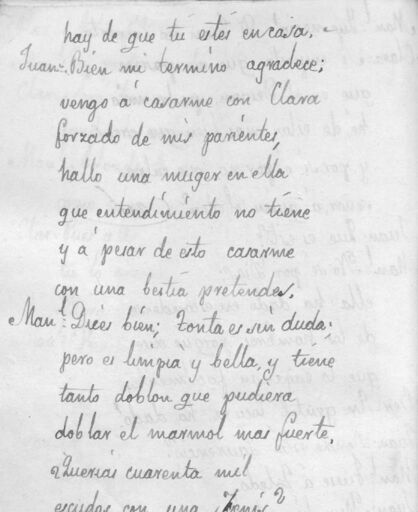 hay de que tú estés en casa.
Juan. Bien mi termino agradece;
vengo á casarme con Clara
forzado de mis parientes,
hallo una muger en ella
que entendimiento no tiene
y á pesar de esto casarme
con una bestia pretendes.
Manl. Dices bien; tonta es sin duda.
pero es limpia y bella, y tiene
tanto doblon que pudiera
doblar el marmol mas fuerte,
¿Querías cuarenta mil
escudos con una Fenis?